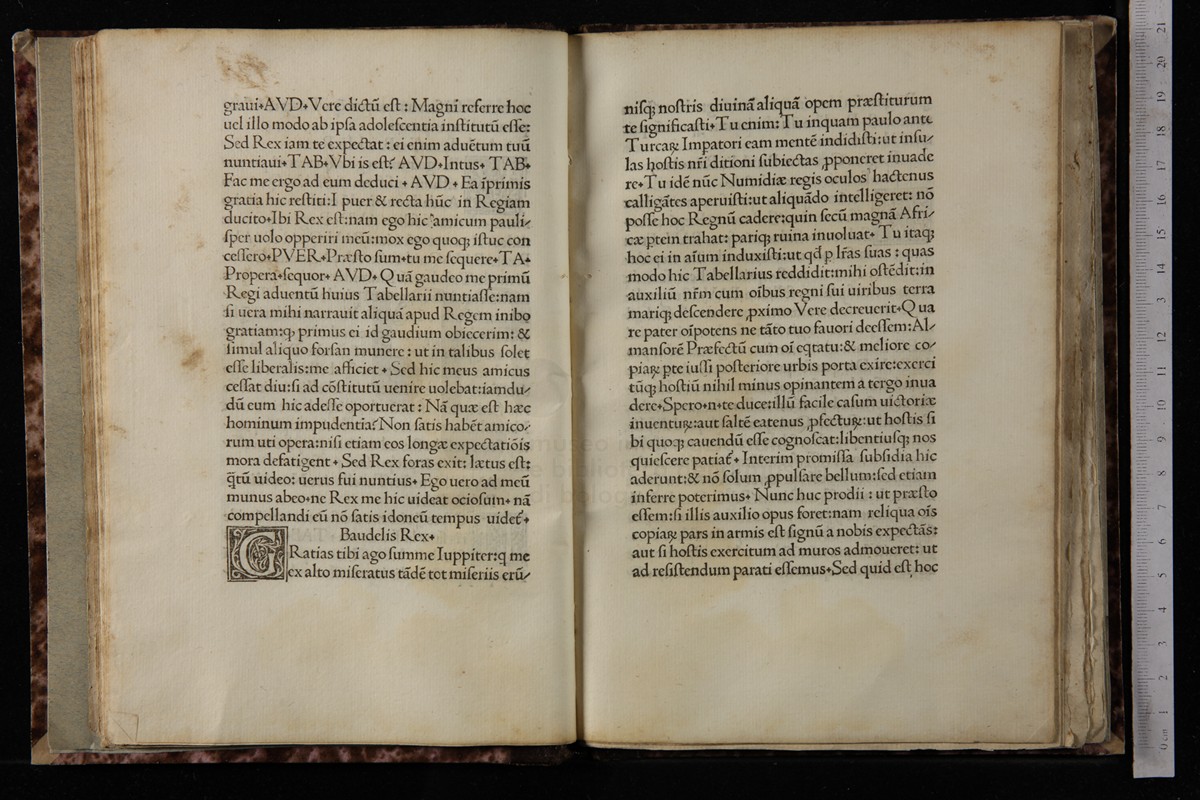 graui⁘AVD⁘Vere dictũ eſt : Magni referre hoc
uel illo modo ab ipſa adoleſcentia inſtitutũ eſſe:
Sed Rex iam te expectat : ei enim aduẽtum tuũ
nuntiaui⁘TAB⁘Vbi is eſt? AVD⁘Intus⁘ TAB⁘
Fac me ergo ad eum deduci ⁘ AVD ⁘ Ea ĩprimis
gratia hic reſtiti:I puer & recta hũc in Regiam
ducito⁘Ibi Rex eſt:nam ego hic amicum pauli⸗
ſper uolo opperiri meũ:mox ego quoq; iſtuc con
ceſſero⁘PVER⁘Præſto ſum⁘tu me ſequere⁘TA⁘
Propera⁘ſequor⁘ AVD⁘ Quã gaudeo me primũ
Regi aduentũ huius Tabellarii nuntiaſſe:nam
ſi uera mihi narrauit aliquã apud Regem inibo
gratiam:q; primus ei id gaudium obiecerim: &
ſimul aliquo forſan munere : ut in talibus ſolet
eſſe liberalis:me afficiet ⁘ Sed hic meus amicus
ceſſat diu:ſi ad cõſtitutũ uenire uolebat:iamdu⸗
dũ eum hic adeſſe oportuerat : Nã quæ eſt hæc
hominum impudentia? Non ſatis habẽt amico⸗
rum uti opera:niſi etiam eos longæ expectatiõis
mora defatigent ⁘ Sed Rex foras exit: lætus eſt:
q̃tũ uideo: uerus fui nuntius⁘ Ego uero ad meũ
munus abeo⁘ne Rex me hic uideat ocioſum⁘ nã
compellandi eũ nõ ſatis idoneũ tempus uidet̃⁘
Baudelis Rex⁘
GRatias tibi ago ſumme Iuppiter:q me
ex alto miſeratus tãdẽ tot miſeriis erũ⸗
niſq; noſtris diuinã aliquã opem præſtiturum
te ſignificaſti⁘Tu enim: Tu inquam paulo ante
Turcaꝝ Impatori eam mentẽ indidiſti:ut inſu⸗
las hoſtis nr̃i ditioni ſubiectas ꝓponeret inuade
re⁘Tu idẽ nũc Numidiæ regis oculos hactenus
calligãtes aperuiſti:ut aliquãdo intelligeret: nõ
poſſe hoc Regnũ cadere:quin ſecũ magnã Afri⸗
cæ ptein trahat: pariq; ruina inuoluat⁘ Tu itaq;
hoc ei in aĩum induxiſti:ut qd̃ p lr̃as ſuas : quas
modo hic Tabellarius reddidit:mihi oſtẽdit:in
auxiliũ nr̃m cum oĩbus regni ſui uiribus terra
mariq; deſcendere ꝓximo Vere decreuerit⁘Qua
re pater oĩpotens ne tãto tuo fauori deeſſem:Al⸗
manſorẽ Præfectũ cum oĩ eqtatu:& meliore co⸗
piaꝝ pte iuſſi poſteriore urbis porta exire:exerci
tũq; hoſtiũ nihil minus opinantem a tergo inua
dere⁘Spero⁘n⁘te duce:illũ facile caſum uictoriæ
inuentuꝝ:aut ſaltẽ eatenus ꝓfectuꝝ:ut hoſtis ſi
bi quoq; cauendũ eſſe cognoſcat:libentiuſq; nos
quieſcere patiat̃⁘ Interim promiſſa ſubſidia hic
aderunt:& nõ ſolum ꝓpulſare bellum:ſed etiam
inferre poterimus⁘ Nunc huc prodii : ut præſto
eſſem:ſi illis auxilio opus foret:nam reliqua oĩs
copiaꝝ pars in armis eſt ſignũ a nobis expectãs:
aut ſi hoſtis exercitum ad muros admoueret: ut
ad reſiſtendum parati eſſemus⁘Sed quid eſt hoc